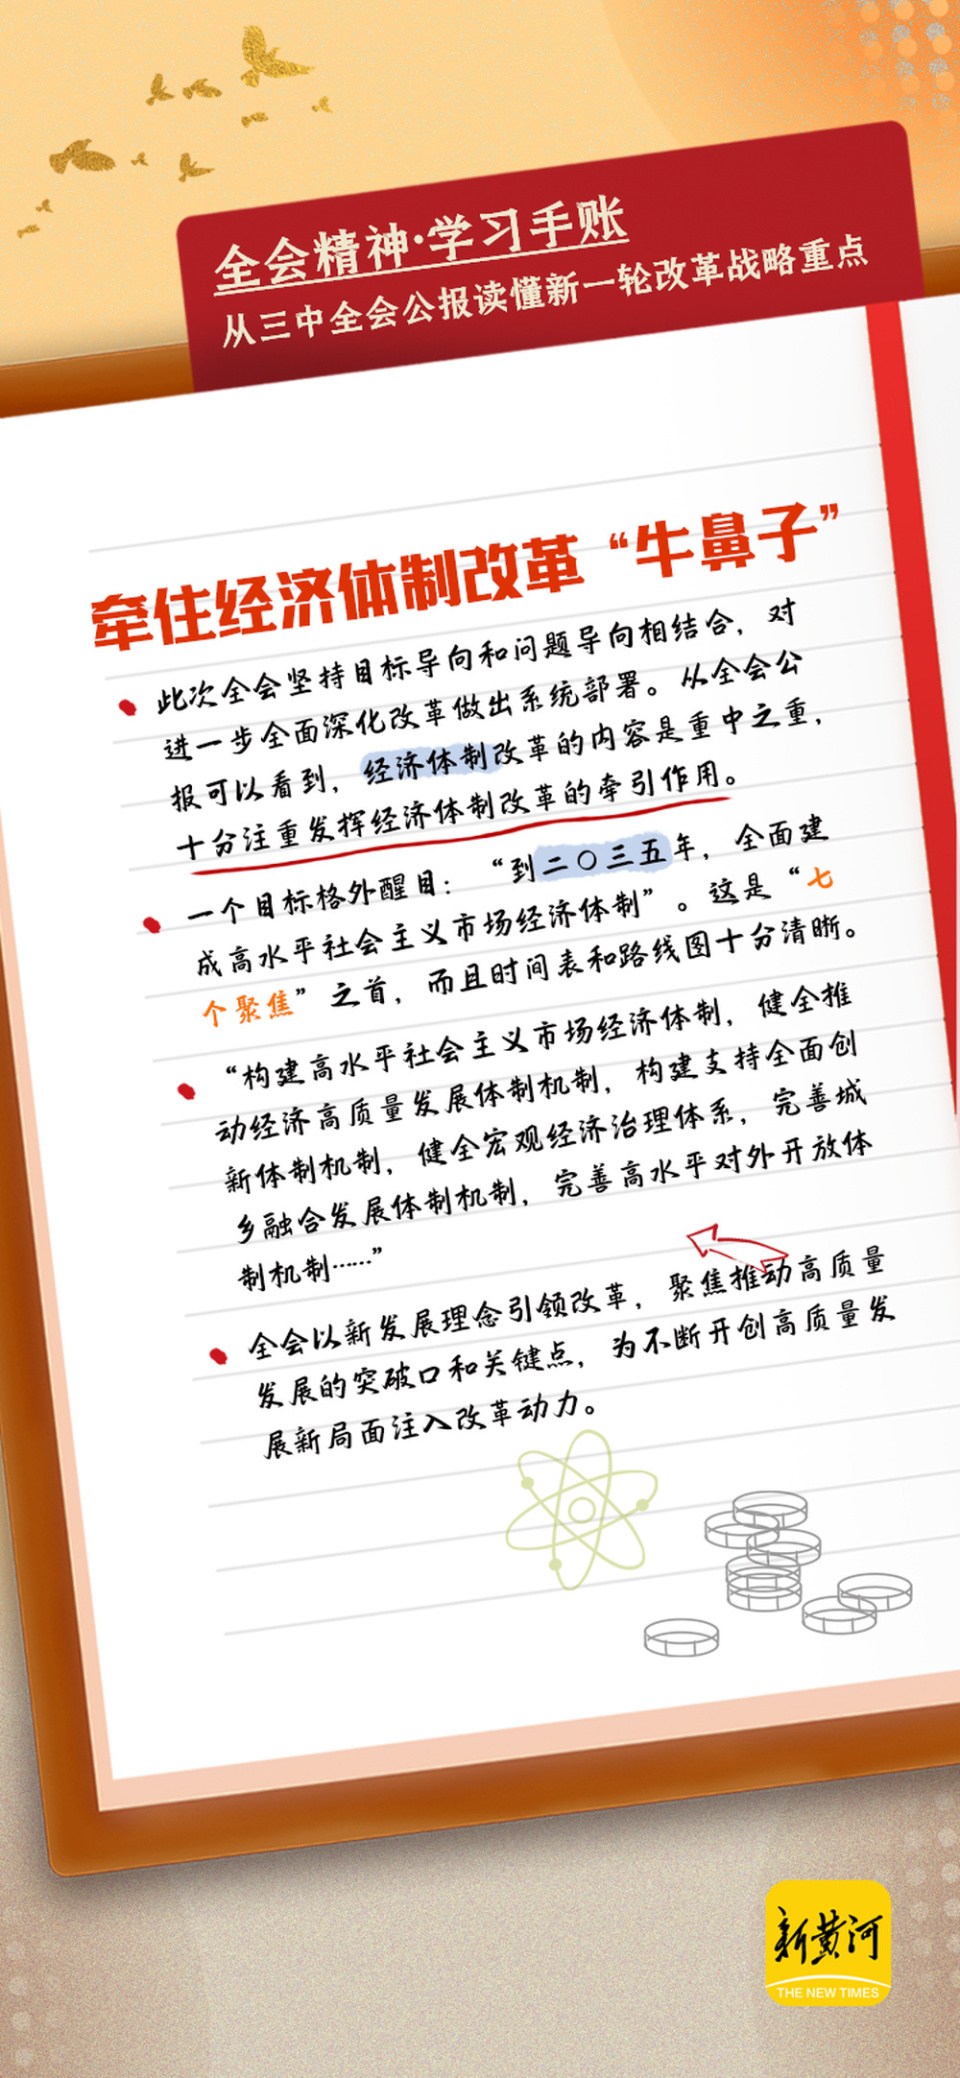 全会精神·学习手账
从三中全会公报读懂新一轮改革战略重点
牵住经济体制改革“牛鼻子”
此次全会坚持目标导向和问题导向相结合，对
进一步全面深化改革做出系统部署。从全会公
报可以看到，经济体制改革的内容是重中之重，
十分注重发挥经济体制改革的牵引作用。
一个目标格外醒目：“到二〇三五年，全面建
成高水平社会主义市场经济体制”。这是“七
个聚焦”之首，而且时间表和路线图十分清晰。
“构建高水平社会主义市场经济体制，健全推
动经济高质量发展体制机制，构建支持全面创
新体制机制，健全宏观经济治理体系，完善城
乡融合发展体制机制，完善高水平对外开放体
制机制……”
全会以新发展理念引领改革，聚焦推动高质量
发展的突破口和关键点，为不断开创高质量发
展新局面注入改革动力。
新黄河
THE NEW TIMES